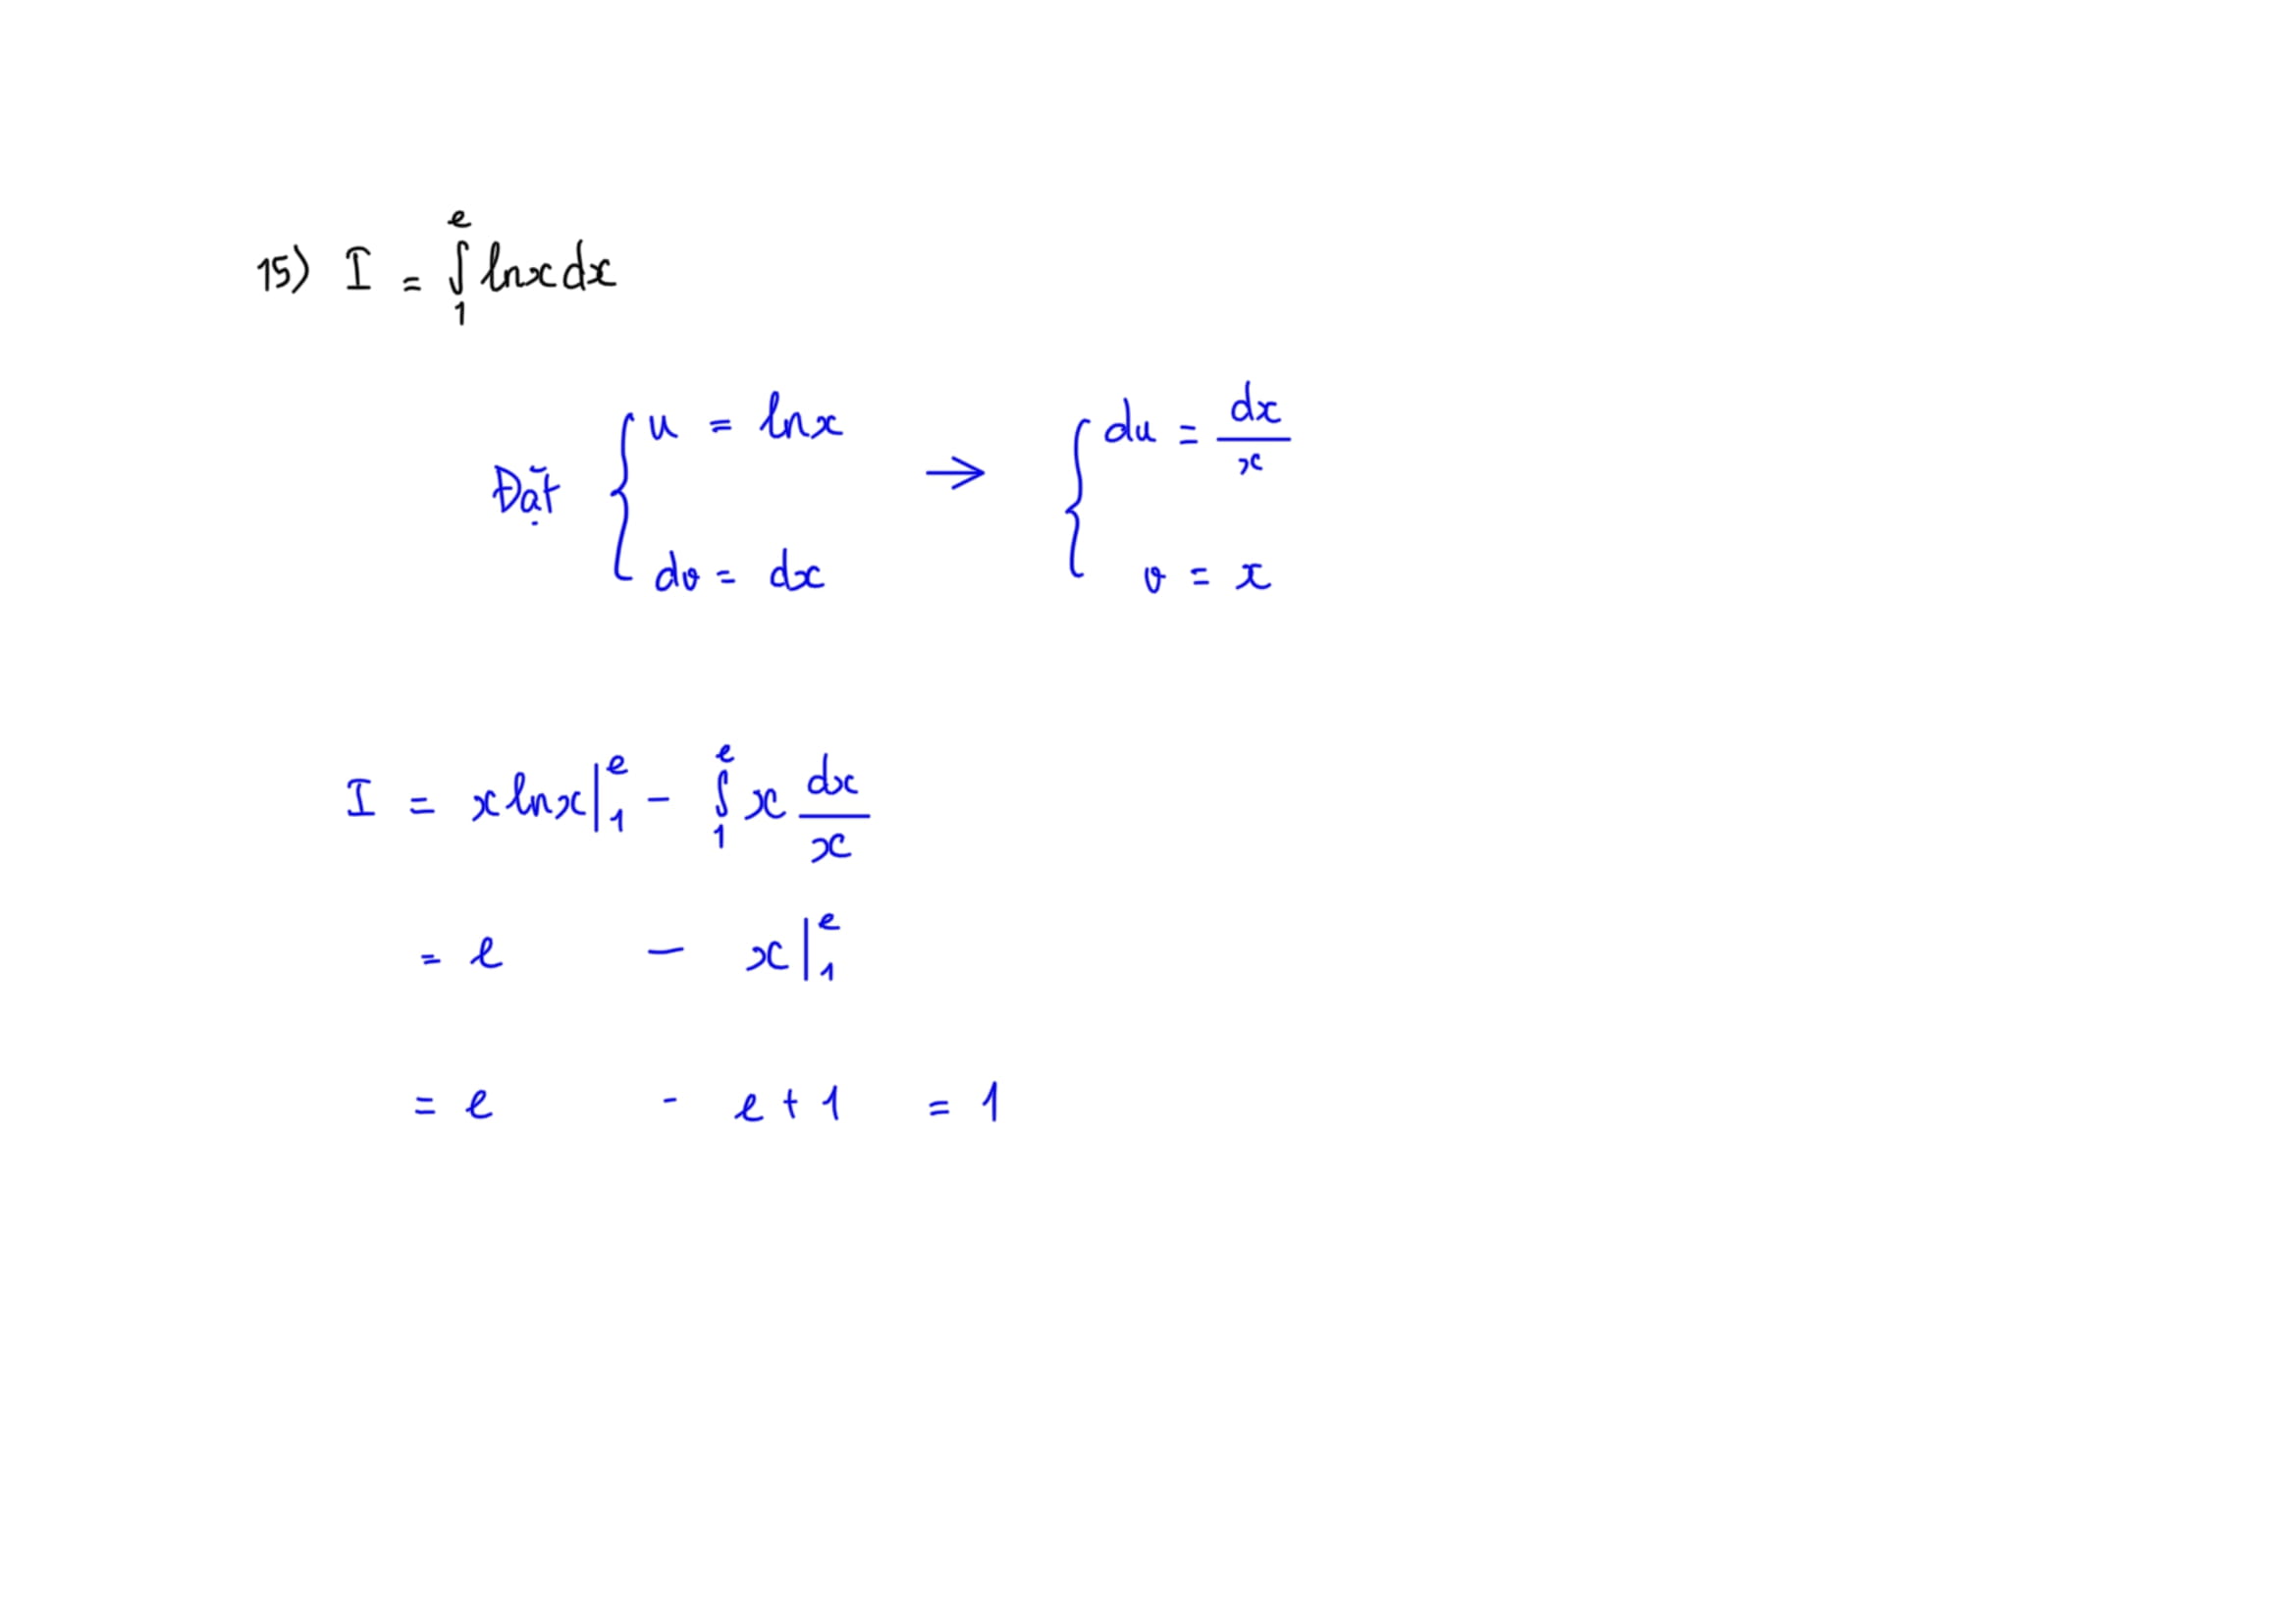 15) I = ∫₁ᵉ lnx dx
Đặt { u = lnx → { du = dx/x
dv = dx v = x
I = x lnx |₁ᵉ - ∫₁ᵉ x dx/x
= e - x |₁ᵉ
= e - e + 1 = 1